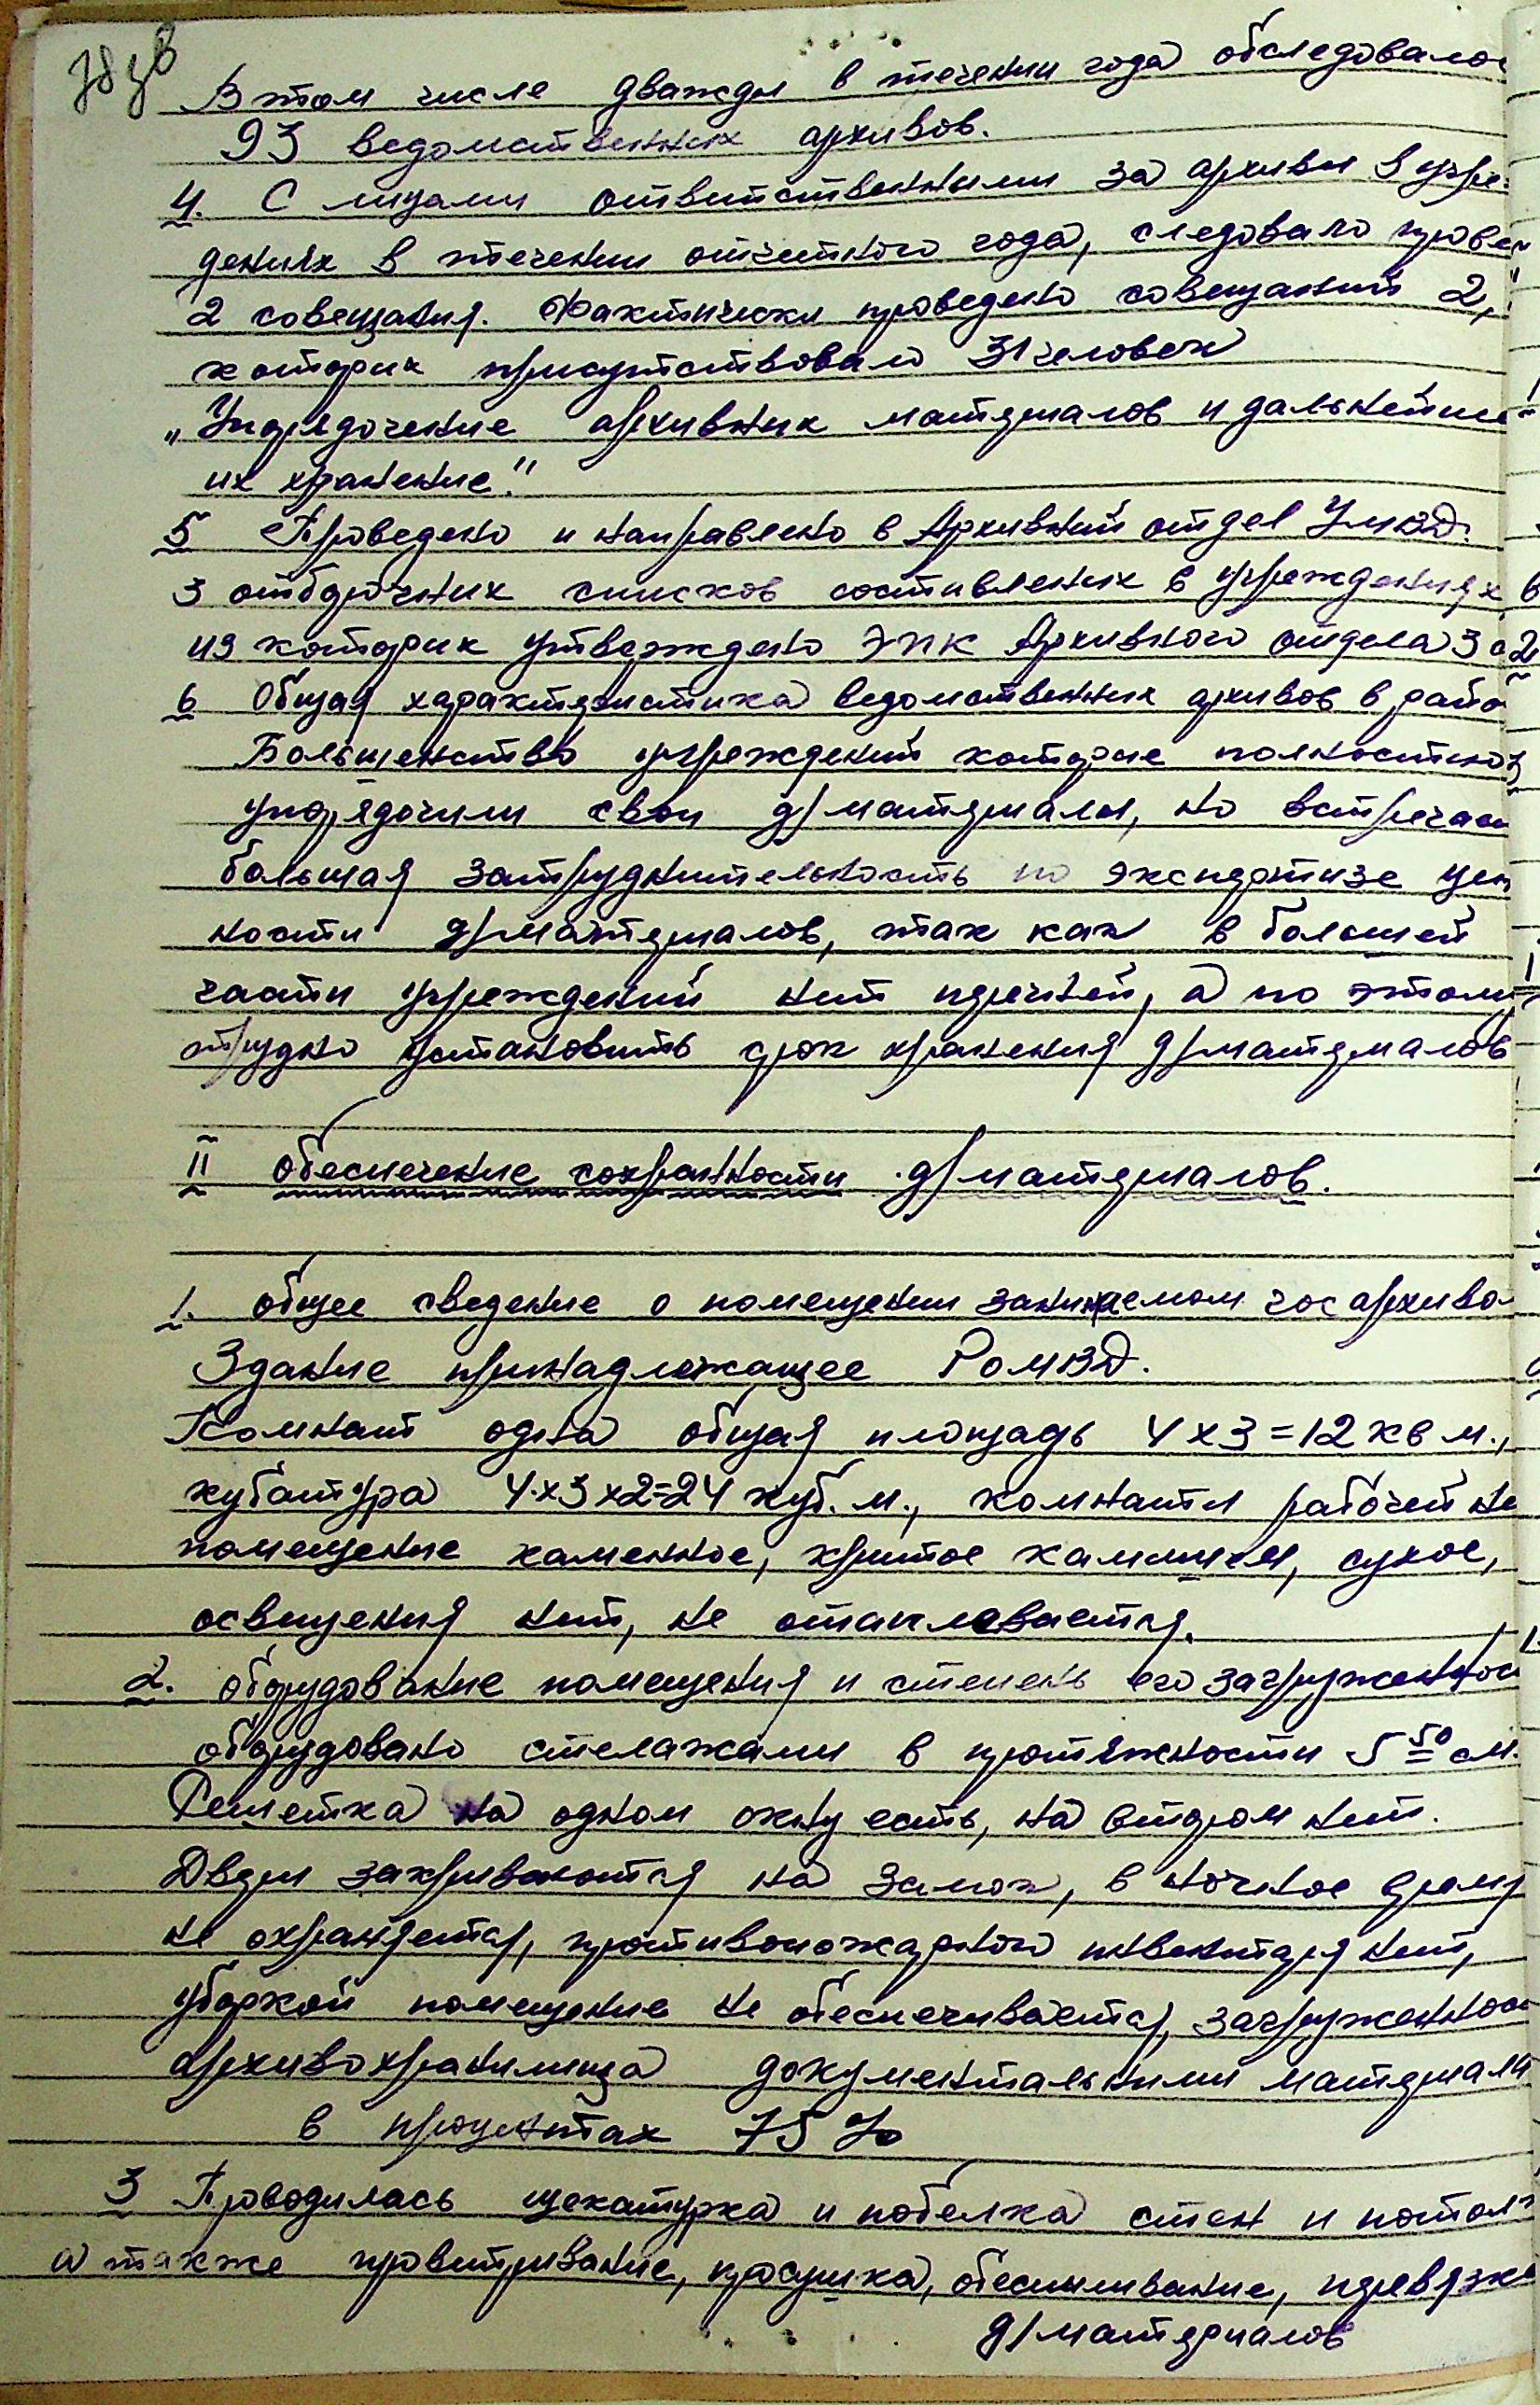 В том числе дважды в течении года обследовалос
93 ведомственных архивов.
4. С лицами ответственными за архивы в учре-
дениях в течении отчетного года, следовало прове
2 совещания. Фактически проведено совещаний 2,
которых присутствовало 31 человек
„Упорядочение архивных материалов и дальнейше
их хранение."
5 Проведено и направлено в Архивный отдел УМВД.
3 отборочных списков составленых в учреждениях
из которых утверждено ЭПК Архивного отдела 3
6 Общая характеристика ведомственных архивов в райо
Большенство учреждений которые полностию
упорядочили свои д/материалы, но встречае
большая затруднительность по экспертизе цен
ности д/материалов, так как в большей
части учреждений нет перечней, а по этому
трудно установить срок хранения д/материалов
II обеспечение сохранности д/материалов.
1. общее сведение о помещении занимаемом гос архиво
Здание принадлежащее РОМВД.
Комнат одна общая площадь 4 х 3 = 12 кв м.,
кубатура 4 х 3 х 2 = 24 куб. м., комнаты рабочей не
помещение каменное, крытое камышем, сухое,
освещения нет, не отапlевается.
2. оборудование помещения и степень его загруженнос
оборудовано стелажами в протяжности 5 50 см.
Решетка на одном окну есть, на втором нет.
Двери закриваются на замок, в ночное время
не охраняется, противопожарного инвентаря нет,
уборкой помещение не обеспечивается, загруженнос
архивохранилища документальными материалам
в процентах 75 %
3 Проводилась щекатурка и побелка стен и потолк
а также проветривание, просушка, обеспыливание, перевязка
д/материалов